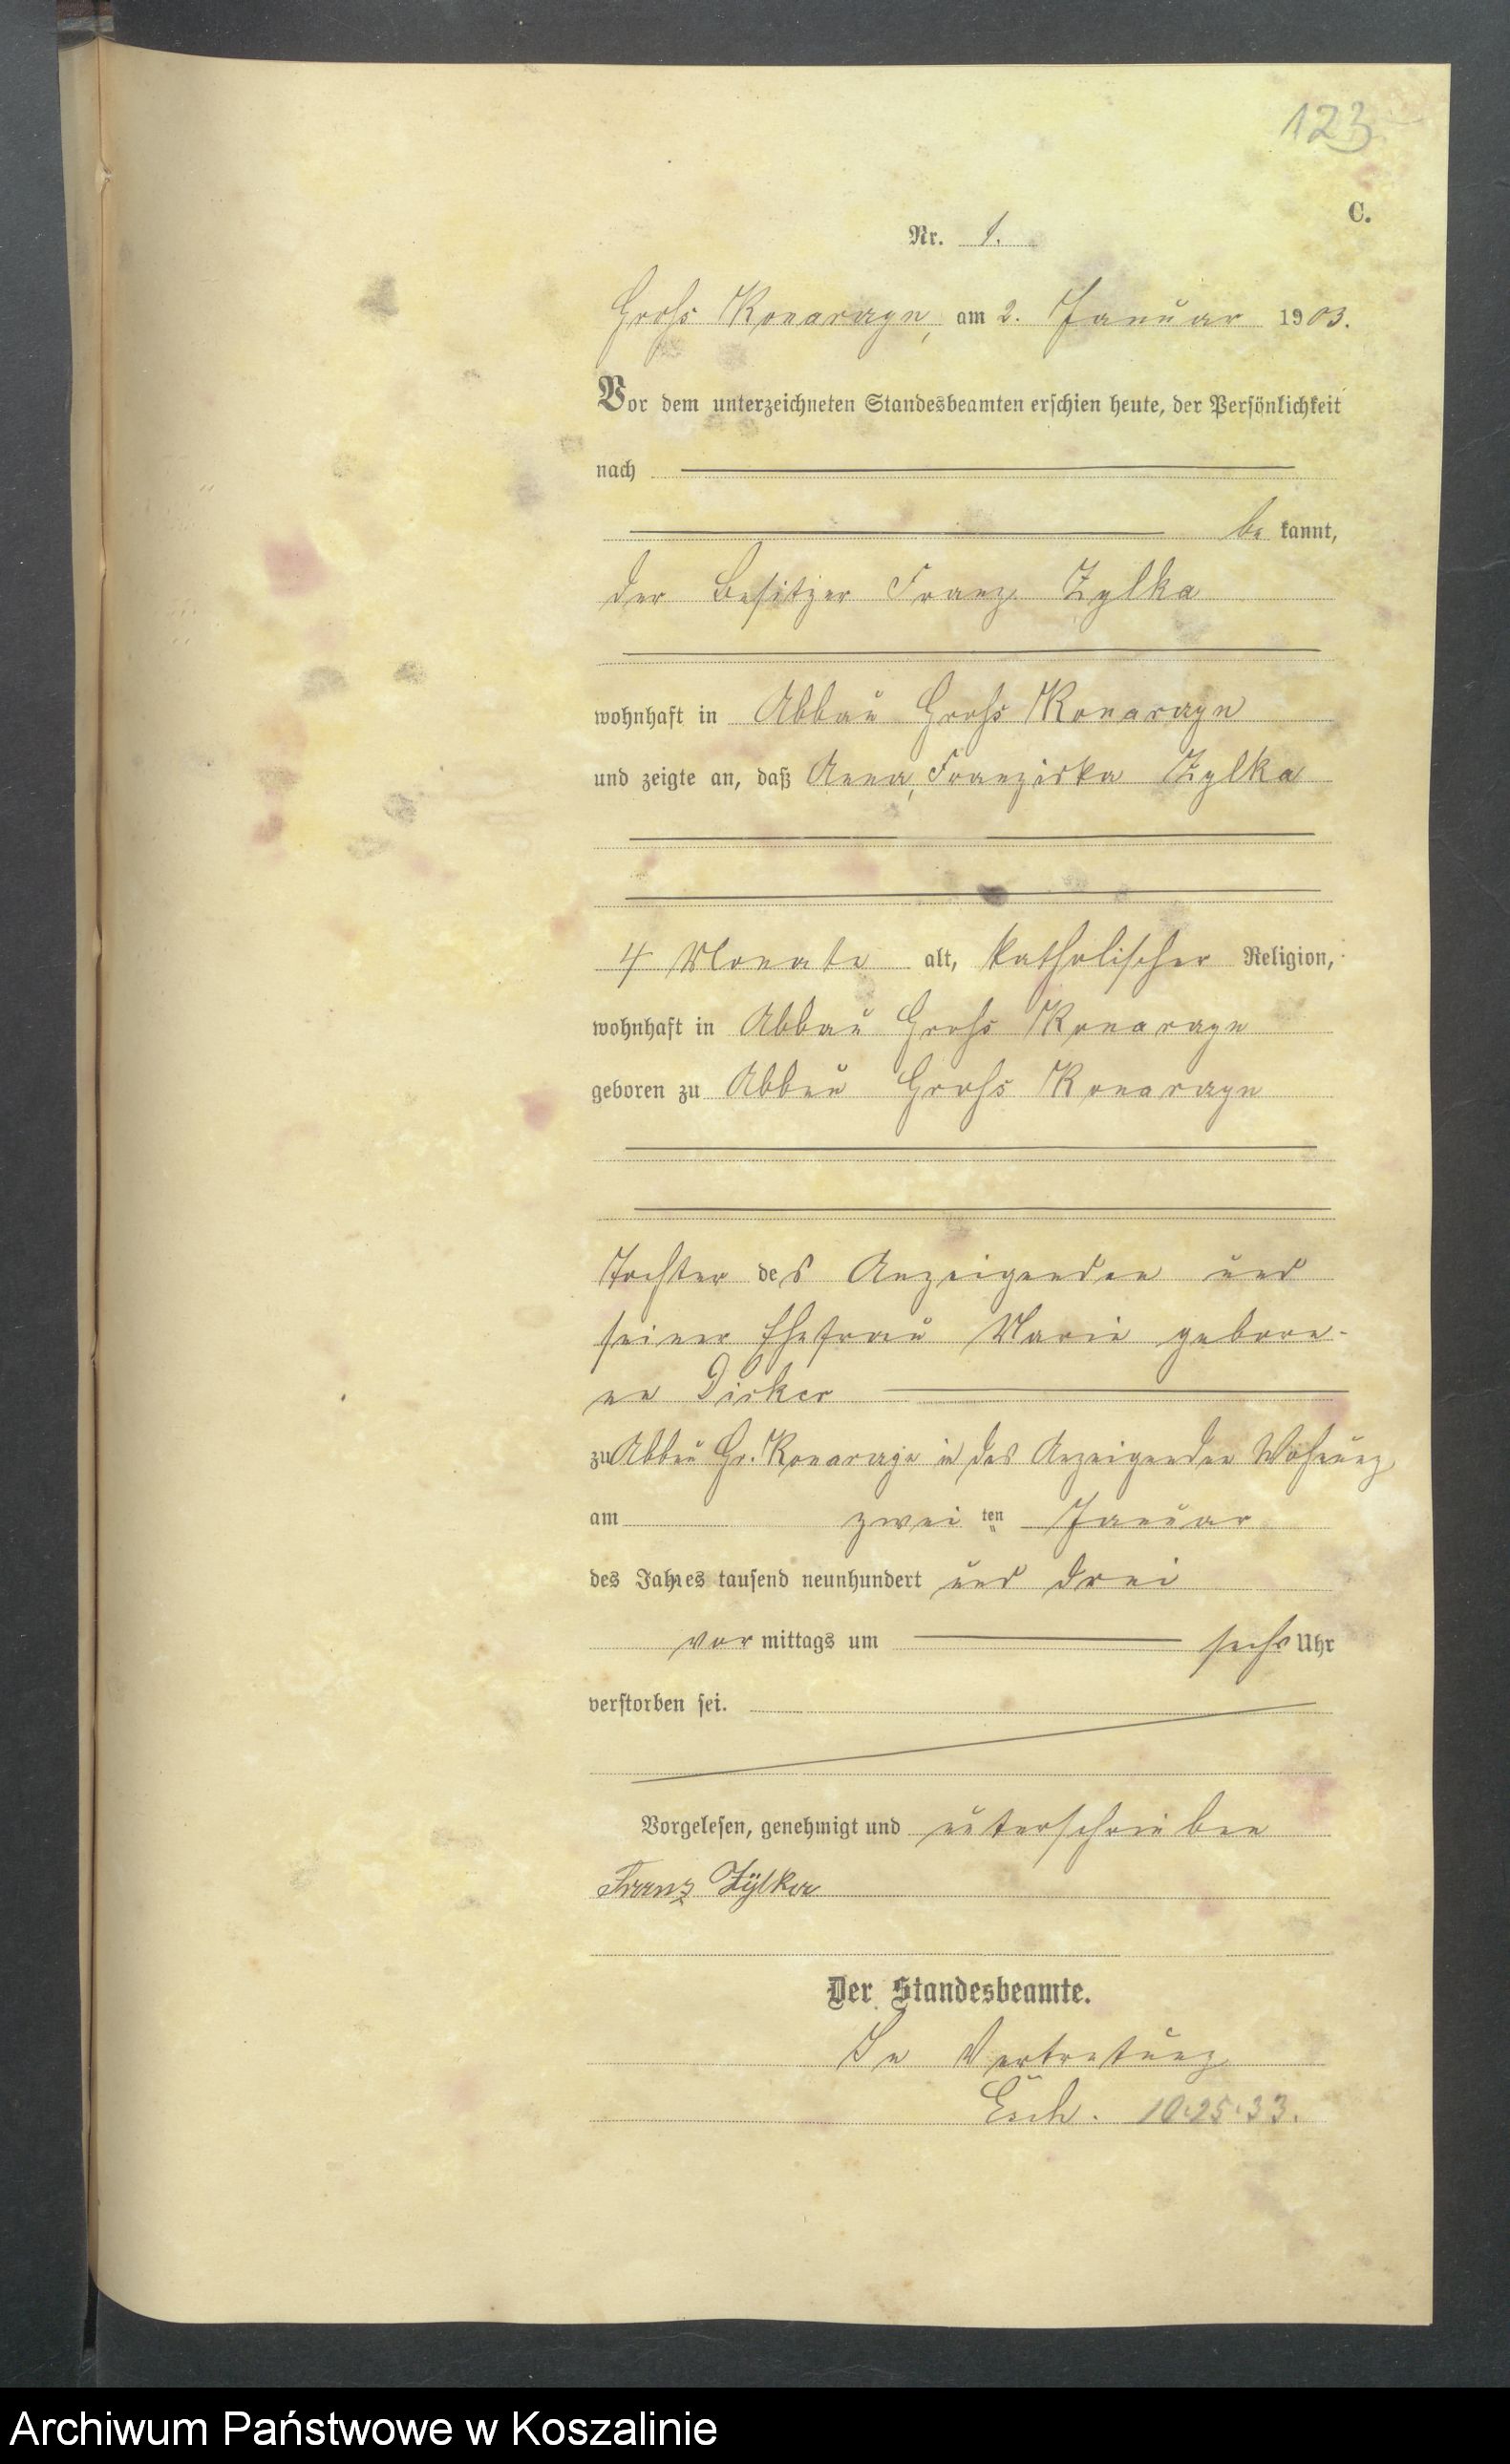 123
C.
Nr. 1.
Gross Konarzyn, am 2. Januar 1903.
Vor dem unterzeichneten Standesbeamten erschien heute, der Persönlichkeit
nach
be kannt,
der Besitzer Franz Zylka
wohnhaft in Abbau Gross Konarzyn
und zeigte an, daß Anna, Franziska Zylka
4 Monate alt, katholischer Religion,
wohnhaft in Abbau Gross Konarzyn
geboren zu Abbau Gross Konarzyn
Tochter des Anzeigenden und
seiner Ehefrau Marie gebore-
ne
zu Abbau Gr. Konarzyn in des Anzeigenden Wohnung
am zwei ten Januar
des Jahres tausend neunhundert und drei
vor mittags um sechs Uhr
verstorben sei.
Vorgelesen, genehmigt und unterschrieben
Franz Zÿlka
Der Standesbeamte.
In Vertretung
10.25.33.
Archiwum Państwowe w Koszalinie